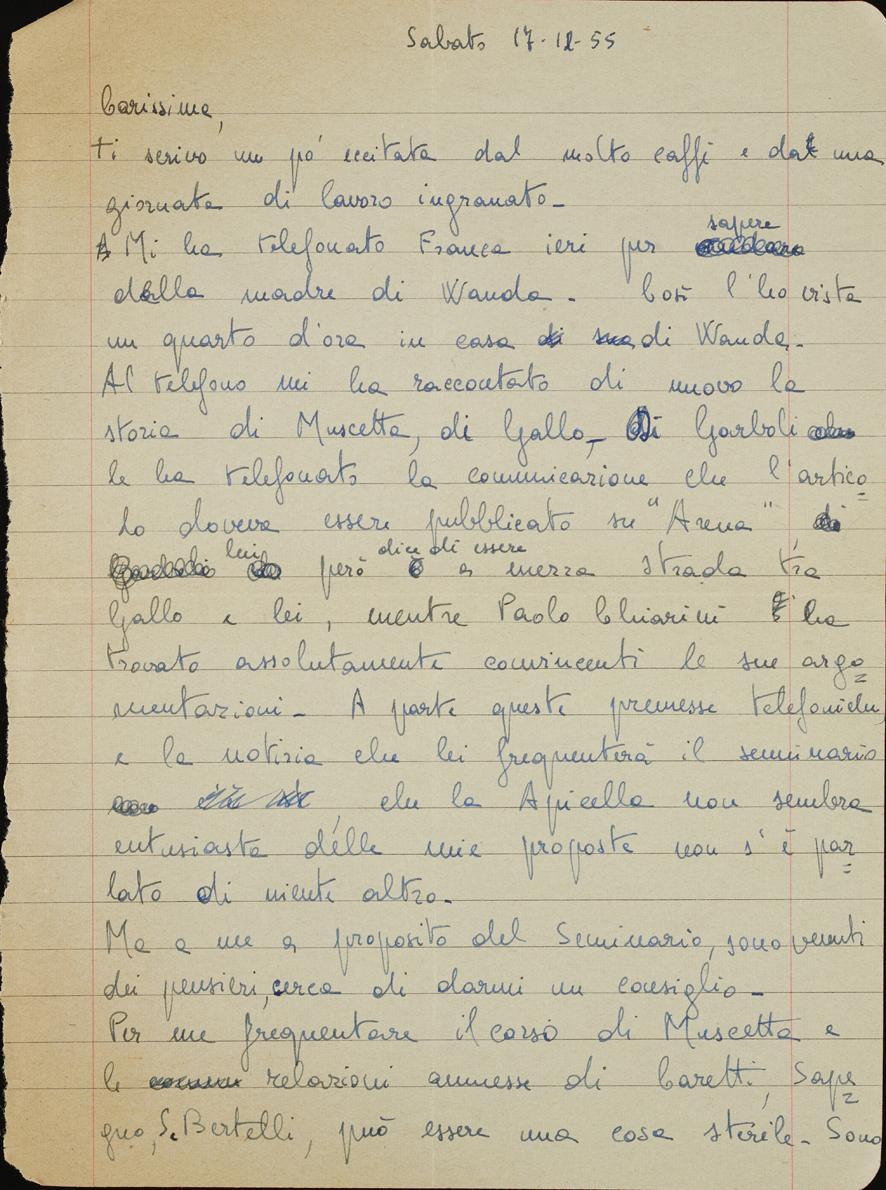 Sabato 17-12-55
Carissima,
ti scrivo un po' eccitata dal molto caffè e da una
giornata di lavoro ingranato-
Mi ha telefonato Franca ieri per sapere
della madre di Wanda. Così l'ho vista
un quarto d'ora in casa di Wanda.
Al telefono mi ha raccontato di nuovo la
storia di Muscetta, di Gallo, Di Garboli
le ha telefonato la comunicazione che l'artico=
lo doveva essere pubblicato su "Arena",
lui però dice di essere a mezza strada tra
Gallo e lei, mentre Paolo Chiarini ha
trovato assolutamente convincenti le sue argo=
mentazioni- A parte queste premesse telefoniche,
e la notizia che lei frequenterà il seminario
, che la Apicella non sembra
entusiasta delle mie proposte non s'è par=
lato di niente altro-
Ma a me a proposito del Seminario, sono venuti
dei pensieri, cerca di darmi un consiglio-
Per me frequentare il corso di Muscetta e
le relazioni annesse di Caretti, Sape=
gno, S. Bertelli, può essere una cosa sterile- Sono